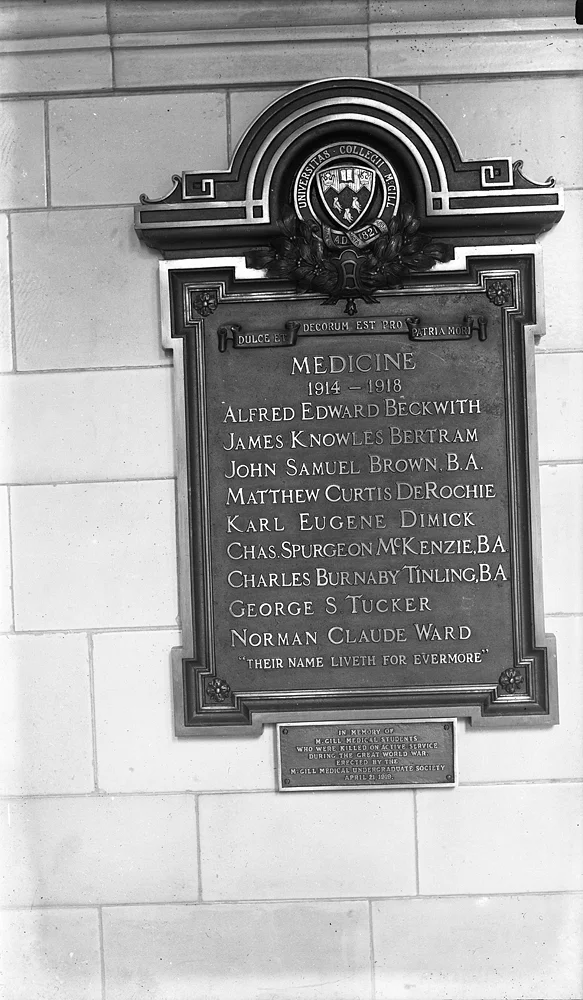 UNIVERSITAS · COLLEGII · McGILL
A.D. 1821
DULCE ET DECORUM EST PRO PATRIA MORI
MEDICINE
1914 – 1918
ALFRED EDWARD BECKWITH
JAMES KNOWLES BERTRAM
JOHN SAMUEL BROWN. B.A.
MATTHEW CURTIS DEROCHIE
KARL EUGENE DIMICK
CHAS. SPURGEON McKENZIE, B.A
CHARLES BURNABY TINLING, B.A
GEORGE S. TUCKER
NORMAN CLAUDE WARD
"THEIR NAME LIVETH FOR EVERMORE"
IN MEMORY OF
McGILL MEDICAL STUDENTS
WHO WERE KILLED ON ACTIVE SERVICE
DURING THE GREAT WORLD WAR
ERECTED BY THE
McGILL MEDICAL UNDERGRADUATE SOCIETY
APRIL 21